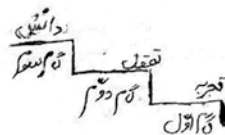 دانش
گام سوم
تعقل
گام دوم
تجربه
گام اول